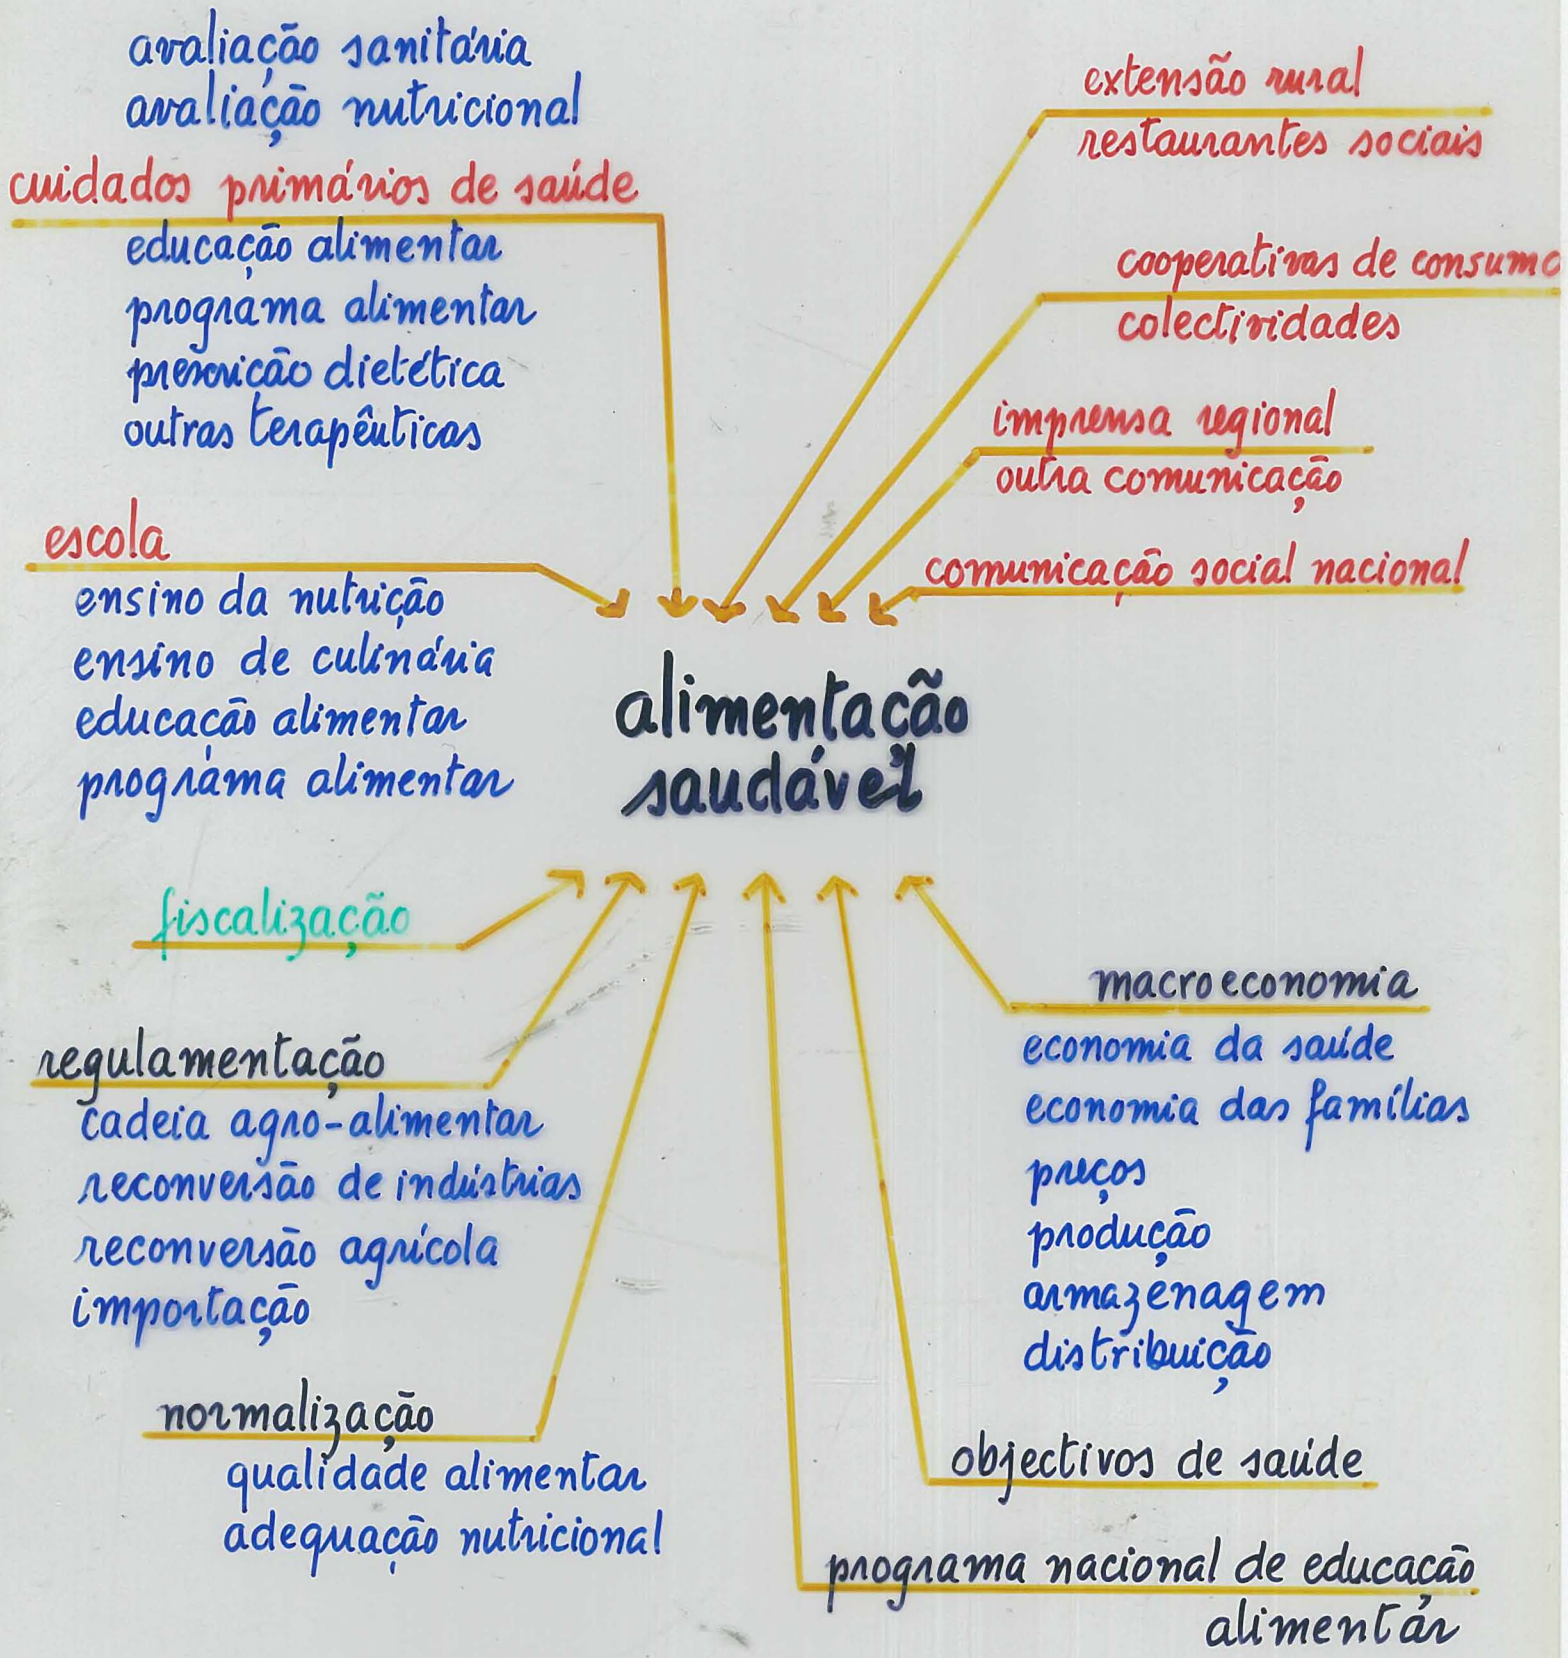 avaliação sanitária
avaliação nutricional
cuidados primários de saúde
educação alimentar
programa alimentar
prescrição dietética
outras terapêuticas
escola
ensino da nutrição
ensino de culinária
educação alimentar
programa alimentar
extensão rural
restaurantes sociais
cooperativas de consumo
colectividades
imprensa regional
outra comunicação
comunicação social nacional
alimentação
saudável
fiscalização
regulamentação
cadeia agro-alimentar
reconversão de indústrias
reconversão agrícola
importação
normalização
qualidade alimentar
adequação nutricional
macroeconomia
economia da saúde
economia das famílias
preços
produção
armazenagem
distribuição
objectivos de saúde
programa nacional de educação
alimentar